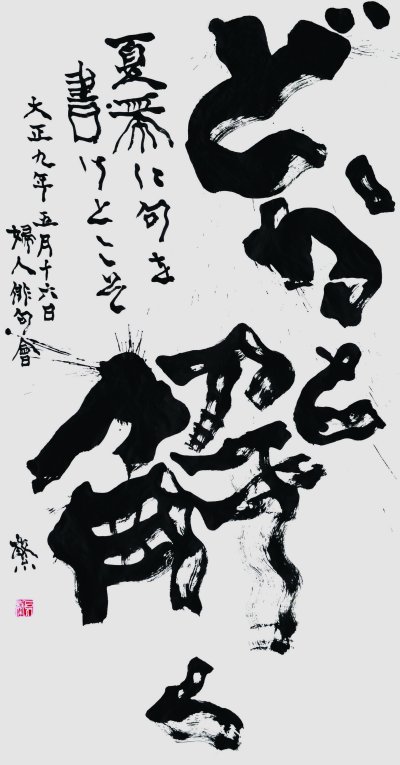 どかと
解く
夏帯に句を
書けとこそ
大正九年五月十六日
婦人俳句會